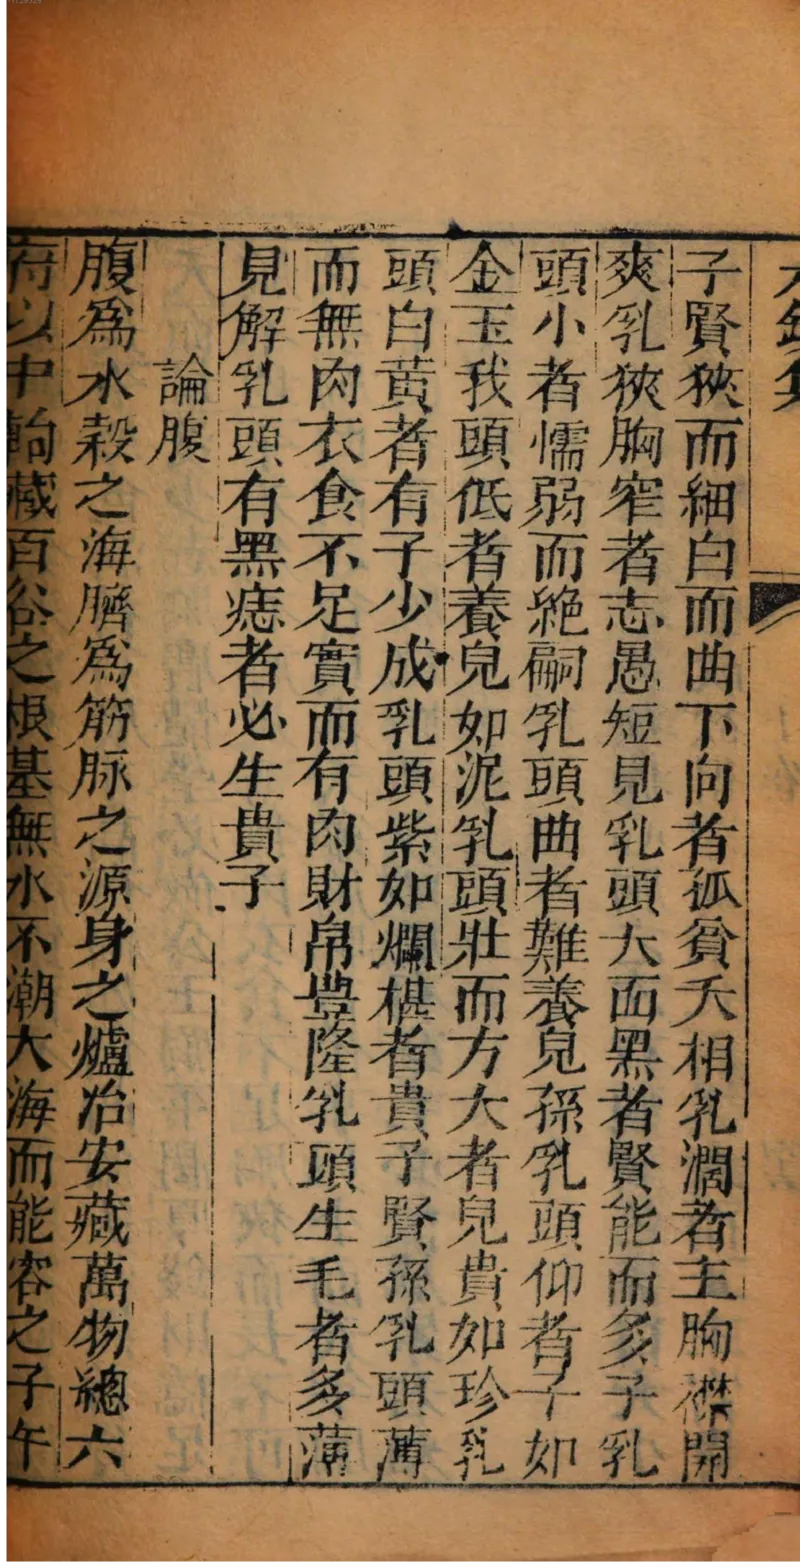 子賢狹而細白而曲下向者孤貧夭相乳濶者主胸襟開
爽乳狹胸窄者志愚短見乳頭大面黑者賢能而多子乳
頭小者懦弱而絶嗣乳頭曲者難養兒孫乳頭仰者子如
金玉我頭低者養兒如泥乳頭壯而方大者兒貴如珍乳
頭白黃者有子少成乳頭紫如爛椹者貴子賢孫乳頭薄
而無肉衣食不足實而有肉財帛豊隆乳頭生毛者多薄
見解乳頭有黑痣者必生貴子
論腹
腹爲水穀之海臍爲筋脉之源身之爐冶安藏萬物總六
府以中向藏百谷之根基無水不潮大海而能容之子午